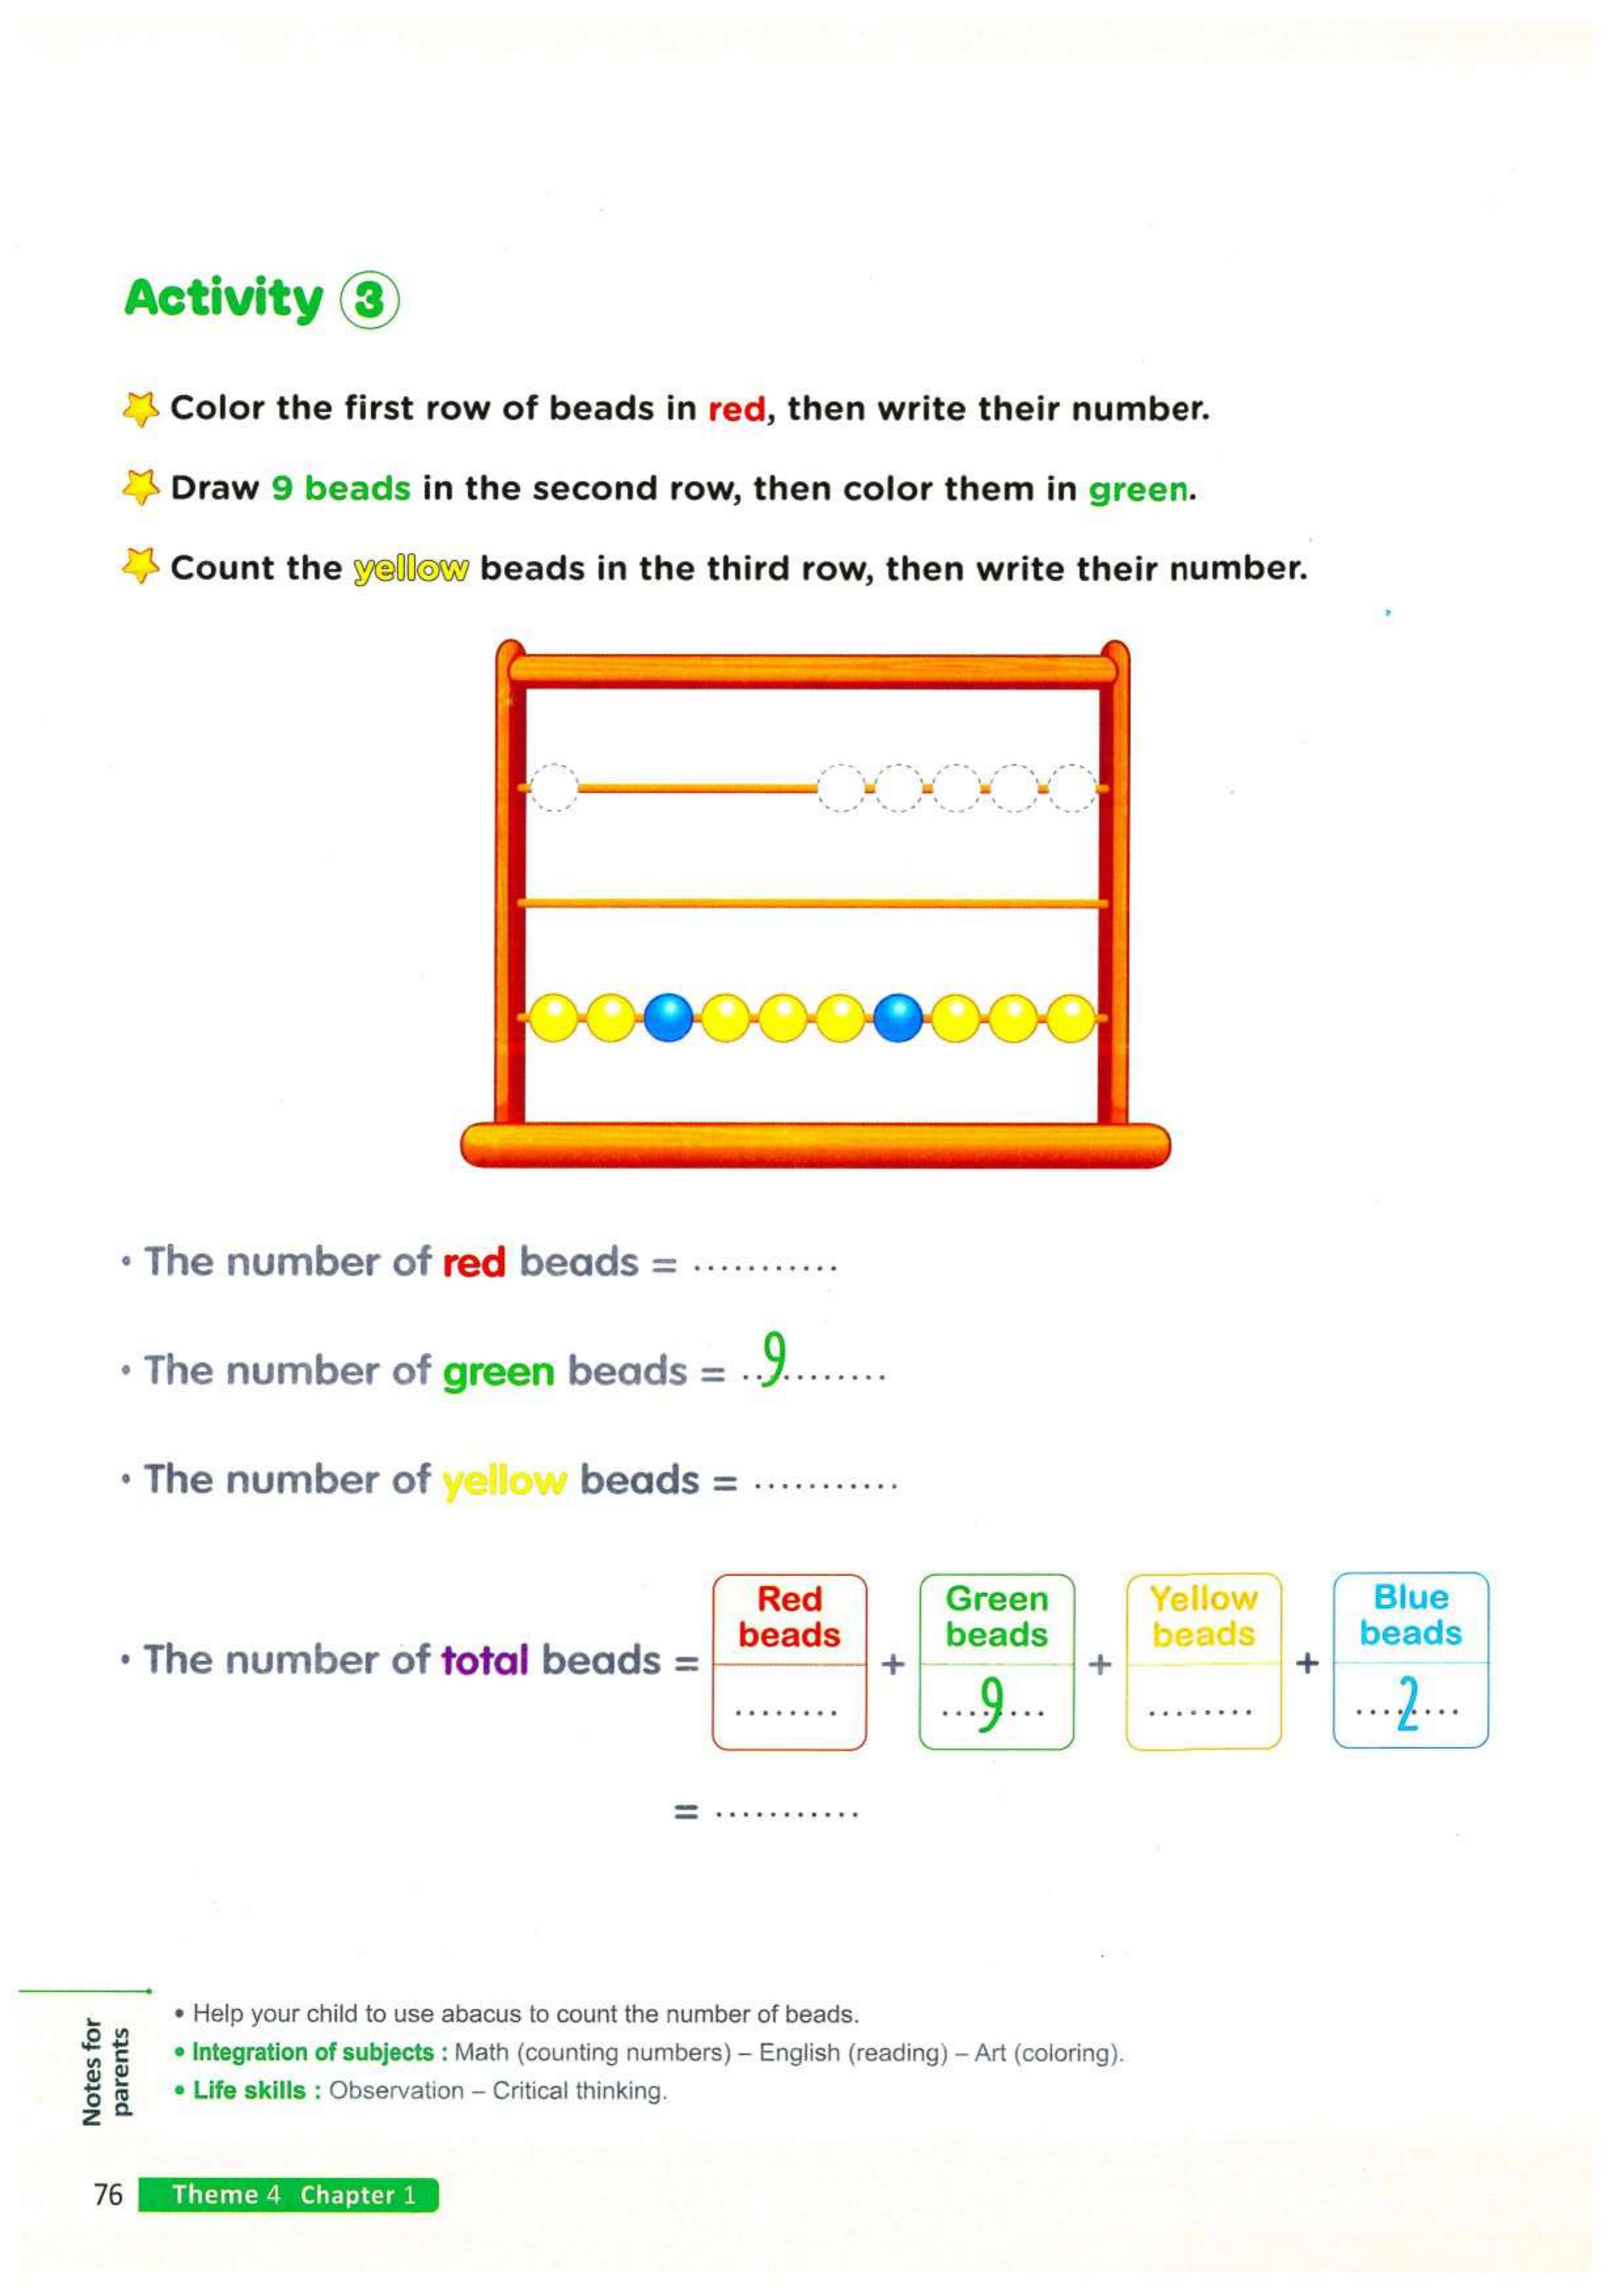 Activity 3
Color the first row of beads in red, then write their number.
Draw 9 beads in the second row, then color them in green.
Count the yellow beads in the third row, then write their number.
• The number of red beads = ...........
• The number of green beads = ..9........
• The number of yellow beads = ...........
Red beads
Green beads
Yellow beads
Blue beads
• The number of total beads = ........ + ...9... + ........ + ...2...
= ...........
Notes for parents
• Help your child to use abacus to count the number of beads.
• Integration of subjects : Math (counting numbers) – English (reading) – Art (coloring).
• Life skills : Observation – Critical thinking.
76 Theme 4 Chapter 1